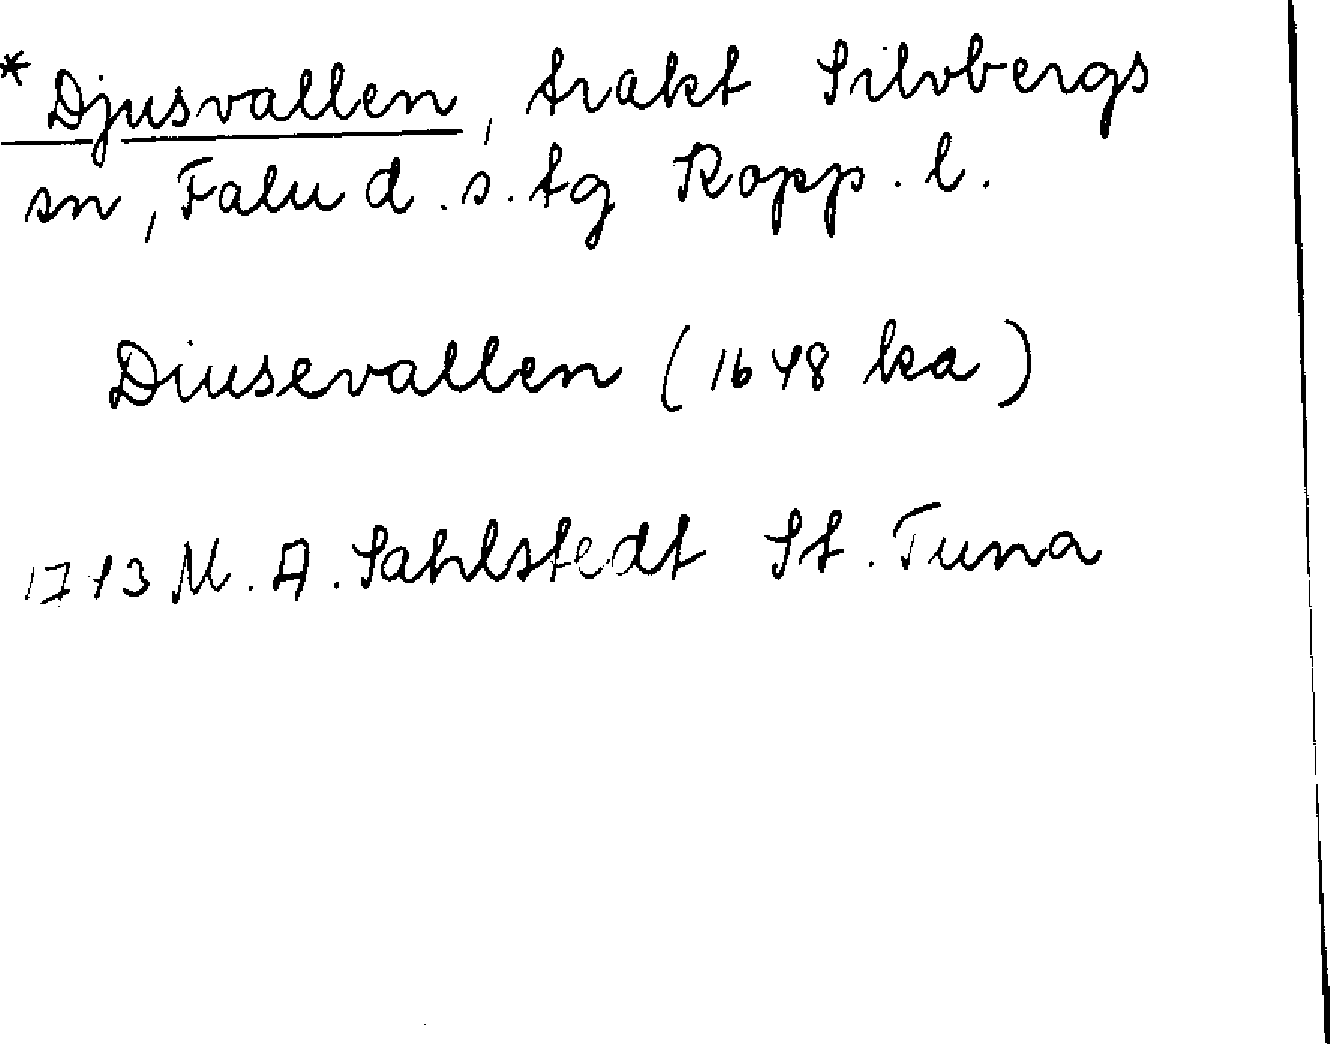 *Djusvallen, trakt Silvbergs
sn, Falu d.s. tg Kopp. l.
Diusevallen (1648 ka)
1743 M. A. Sahlstedt St. Tuna